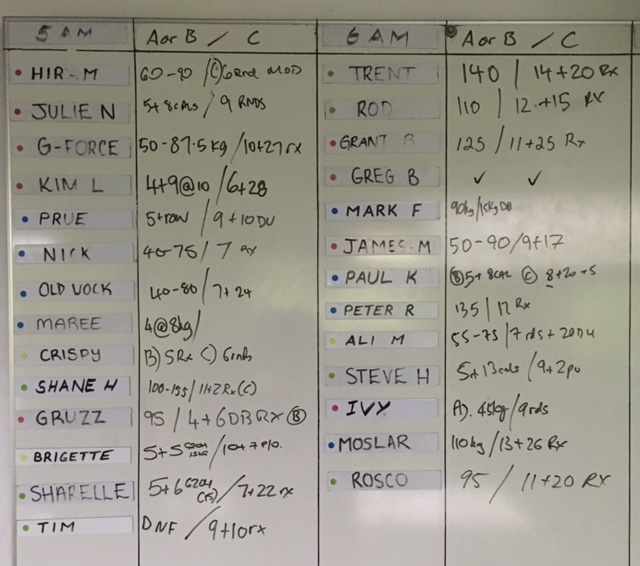 5 AM A or B / C
HIR-M 60-90 / (C) 6 rnd MOD
JULIE N 5+8 CALS / 9 RNDS
G-FORCE 50-87.5kg / 10+27 rx
KIM L 4+9@10 / 6+28
PRUE 5+row / 9+10 DU
NICK 40-75 / 7 rx
OLD VOCK 40-80 / 7+24
MAREE 4@8kg /
CRISPY B) 5Rx C) 6rnds
SHANE H 100-155 / 11+2 Rx (C)
GRUZZ 95 / 4+6 DB RX (B)
BRIGETTE 5+5 / 10+7 P/O.
SHARELLE 5+6 / 7+22 rx
TIM DNF / 9+10rx
6 AM A or B / C
TRENT 140 / 14+20 Rx
ROD 110 / 12+15 RX
GRANT B 125 / 11+25 Rx
GREG B ✓ ✓
MARK F 90kg / 15kg DB
JAMES-M 50-90 / 9+17
PAUL K (B) 5+8CAL (C) 8+20+5
PETER R 135 / 12 Rx
ALI M 55-75 / 7 rds + 20 DU
STEVE H 5+13 cals / 9+2pu
IVY A). 45kg / 9rds
MOSLAR 110kg / 13+26 Rx
ROSCO 95 / 11+20 RX